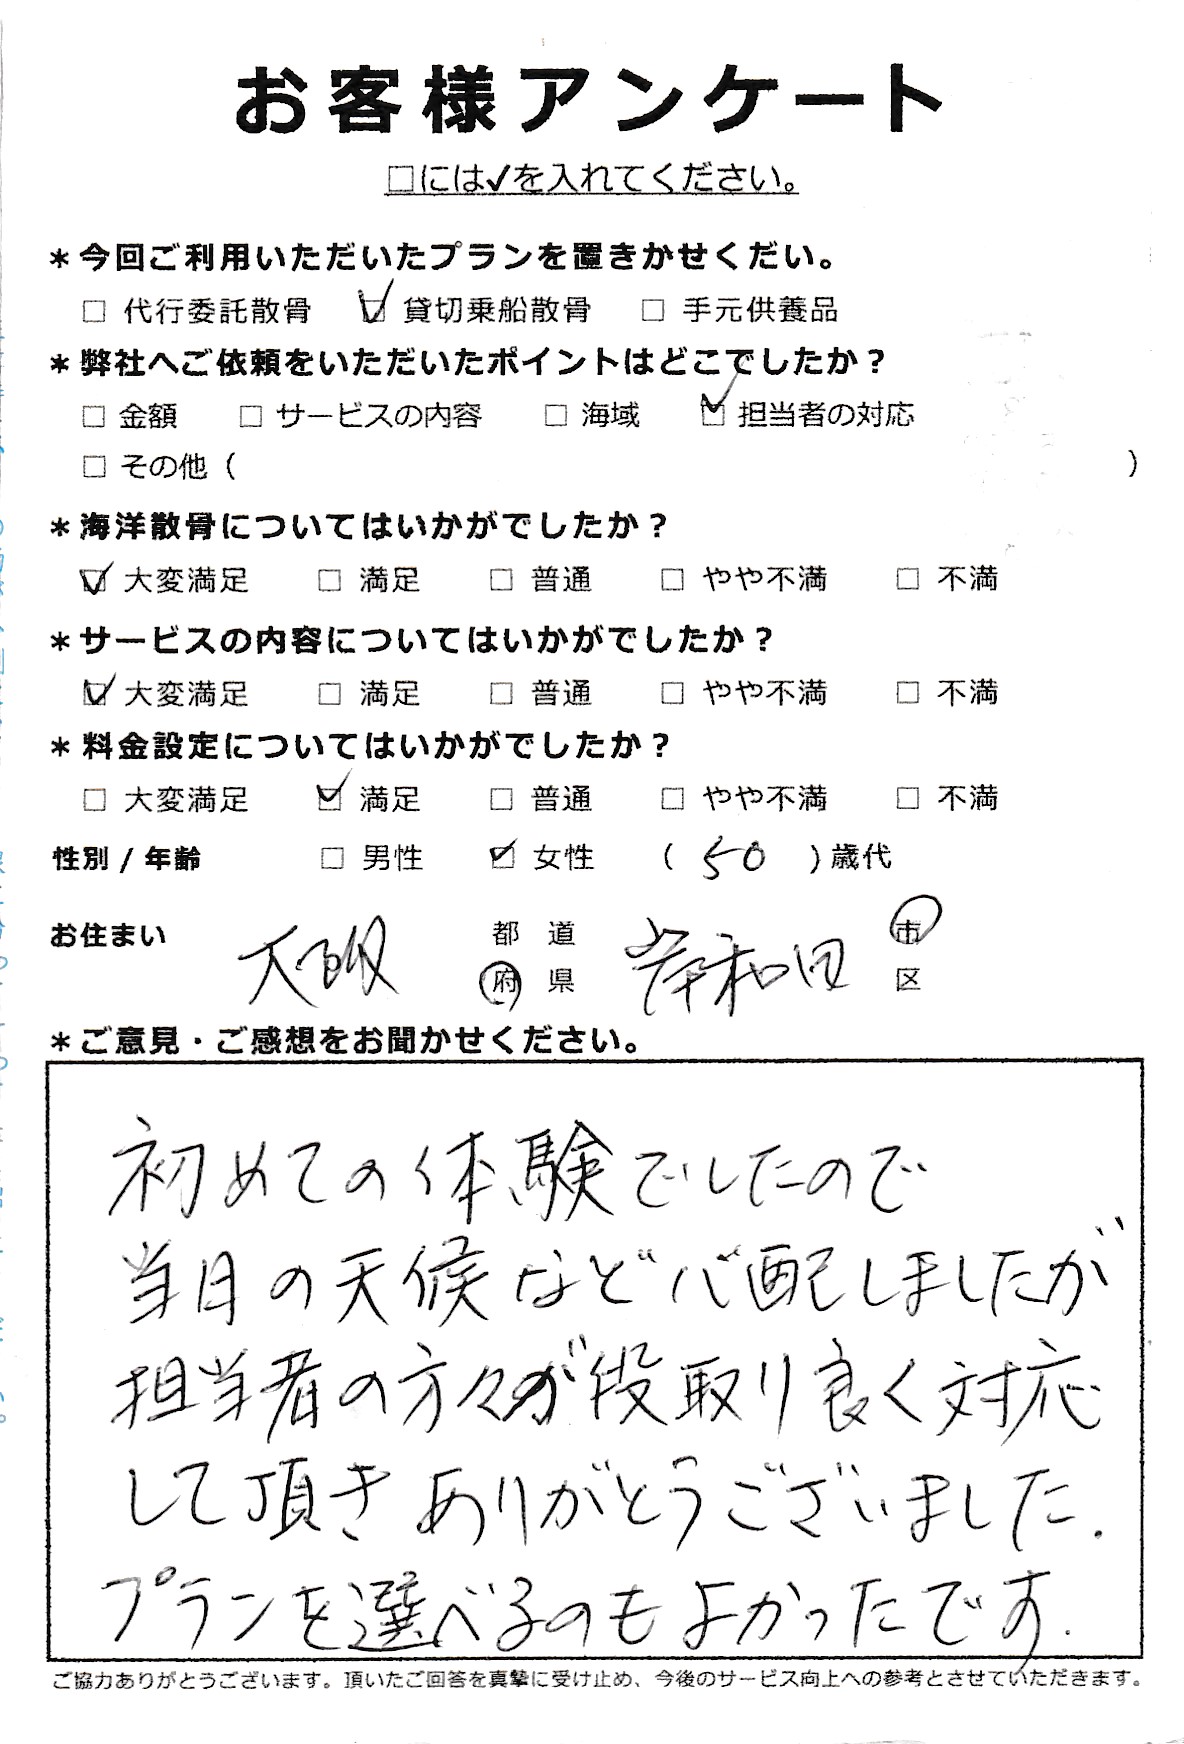 お客様アンケート
□には✓を入れてください。
＊今回ご利用いただいたプランを置きかせくだい。
□ 代行委託散骨 ☑ 貸切乗船散骨 □ 手元供養品
＊弊社へご依頼をいただいたポイントはどこでしたか？
□ 金額 □ サービスの内容 □ 海域 ☑ 担当者の対応
□ その他（ ）
＊海洋散骨についてはいかがでしたか？
☑ 大変満足 □ 満足 □ 普通 □ やや不満 □ 不満
＊サービスの内容についてはいかがでしたか？
☑ 大変満足 □ 満足 □ 普通 □ やや不満 □ 不満
＊料金設定についてはいかがでしたか？
□ 大変満足 ☑ 満足 □ 普通 □ やや不満 □ 不満
性別 / 年齢 □ 男性 ☑ 女性 （ 50 ）歳代
お住まい 大阪 都 道 府 県 岸和田 市 区
＊ご意見・ご感想をお聞かせください。
初めての体験でしたので
当日の天候など心配しましたが
担当者の方々が段取り良く対応
して頂きありがとうございました.
プランを選べるのもよかったです.
ご協力ありがとうございます。頂いたご回答を真摯に受け止め、今後のサービス向上への参考とさせていただきます。